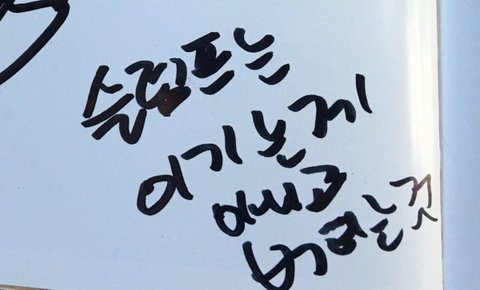 슬럼프는
이기는게
아니고
버티는것